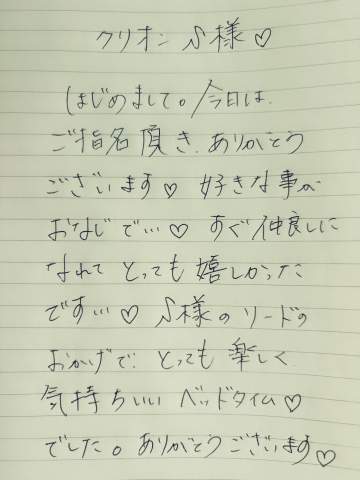 クリオン S様♡
はじめまして。今日は、
ご指名頂き、ありがとう
ございます♡ 好きな事が
おなじで…♡ すぐ仲良しに
なれて とっても 嬉しかった
です…♡ S様の リードの
おかげで、とっても 楽しく、
気持ちいい ベッドタイム♡
でした。ありがとうございます♡